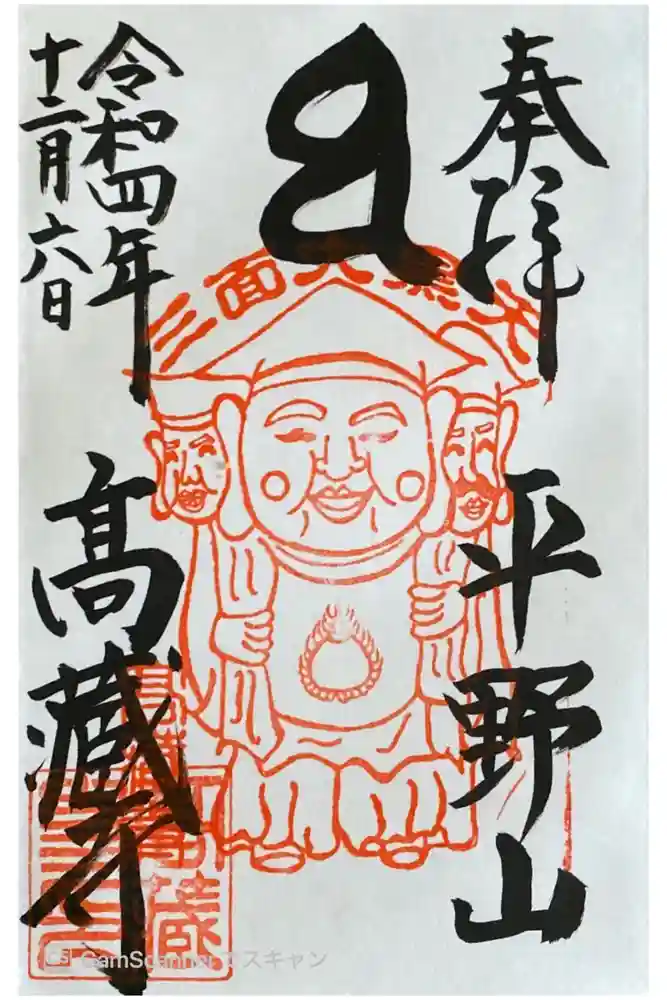 奉拝
平野山
三面大黒天
令和四年
十二月六日
高蔵寺
CamScanner でスキャン